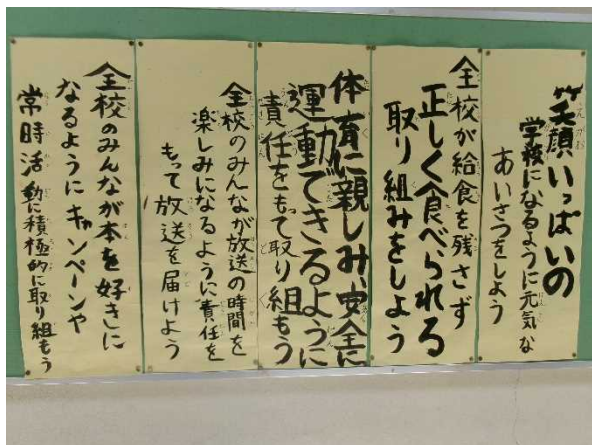 笑顔いっぱいの
学校になるように元気な
あいさつをしよう
全校が給食を残さず
正しく食べられる
取り組みをしよう
体育に親しみ、安全に
運動できるように
責任をもって取り組もう
全校のみんなが放送の時間を
楽しみになるように責任を
もって放送を届けよう
全校のみんなが本を好きに
なるようにキャンペーンや
常時活動に積極的に取り組もう